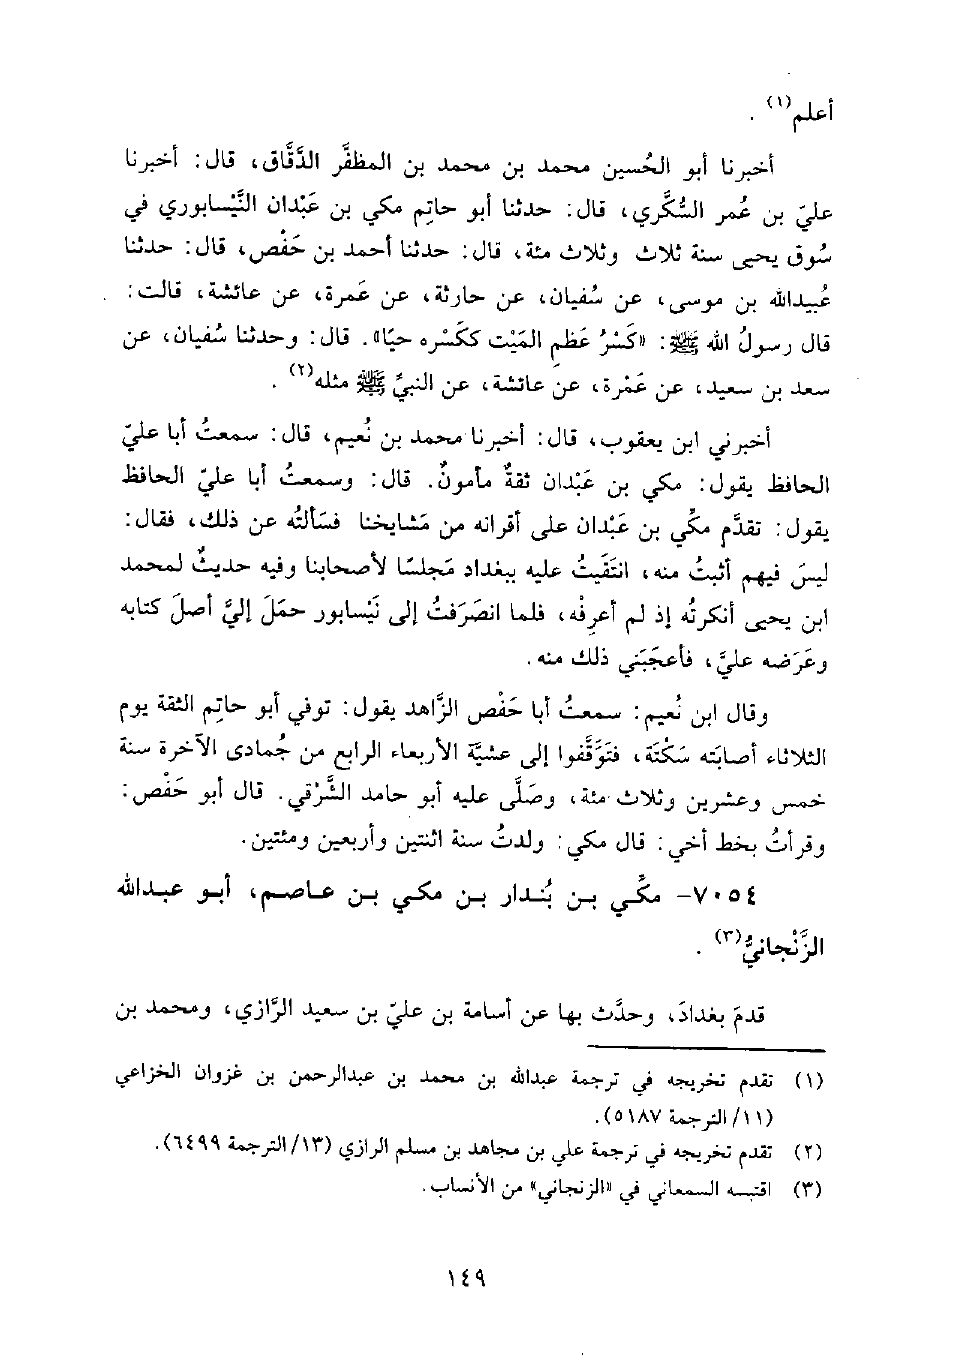 أعلم(١) .
أخبرنا أبو الحُسين محمد بن محمد بن المظفَّر الدَّقَّاق، قال: أخبرنا
عليّ بن عُمر السُّكَّري، قال: حدثنا أبو حاتِم مكي بن عَبْدان النَّيْسابوري في
سُوق يحيى سنة ثلاث وثلاث مئة، قال: حدثنا أحمد بن حَفْص، قال: حدثنا
عُبيدالله بن موسى، عن سُفيان، عن حارثة، عن عَمرة، عن عائشة، قالت:
قال رسولُ الله ﷺ: «كَسْرُ عَظْمِ المَيْت ككَسْره حيًا». قال: وحدثنا سُفيان، عن
سعد بن سعيد، عن عَمْرة، عن عائشة، عن النبيِّ ﷺ مثله(٢) .
أخبرني ابن يعقوب، قال: أخبرنا محمد بن نُعيم، قال: سمعتُ أبا عليّ
الحافظ يقول: مكي بن عَبْدان ثقةٌ مأمونٌ. قال: وسمعتُ أبا عليّ الحافظ
يقول: تقدَّم مكِّي بن عَبْدان على أقرانه من مَشايخنا فسَألتُه عن ذلك، فقال:
ليسَ فيهم أثبتُ منه، انتَقَيتُ عليه ببغداد مَجلسًا لأصحابنا وفيه حديثٌ لمحمد
ابن يحيى أنكرتُه إذ لم أعرِفْه، فلما انصَرَفتُ إلى نَيْسابور حمَلَ إليَّ أصلَ كتابه
وعَرَضه عليَّ، فأعجَبَني ذلك منه.
وقال ابن نُعيم: سمعتُ أبا حَفْص الزَّاهد يقول: توفي أبو حاتِم الثقة يوم
الثلاثاء أصابَته سَكْتَة، فتوَقَّفوا إلى عشيَّة الأربعاء الرابع من جُمادى الآخرة سنة
خمس وعشرين وثلاث مئة، وصَلَّى عليه أبو حامد الشَّرْقي. قال أبو حَفْص:
وقرأتُ بخط أخي: قال مكي: ولدتُ سنة اثنتين وأربعين ومئتين.
٧٠٥٤- مكِّي بن بُندار بن مكي بن عاصم، أبو عبدالله
الزَّنْجانيُّ(٣) .
قدمَ بغدادَ، وحدَّث بها عن أسامة بن عليّ بن سعيد الرَّازي، ومحمد بن
(١) تقدم تخريجه في ترجمة عبدالله بن محمد بن عبدالرحمن بن غزوان الخزاعي
(١١/ الترجمة ٥١٨٧).
(٢) تقدم تخريجه في ترجمة علي بن مجاهد بن مسلم الرازي (١٣/ الترجمة ٦٤٩٩).
(٣) اقتبسه السمعاني في «الزنجاني» من الأنساب.
١٤٩